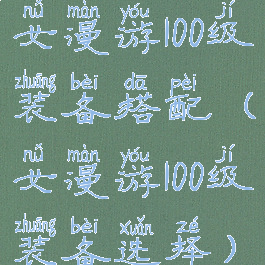 nǚ màn yóu jí
女漫游100级
zhuāng bèi dā pèi
装备搭配（
nǚ màn yóu jí
女漫游100级
zhuāng bèi xuǎn zé
装备选择）